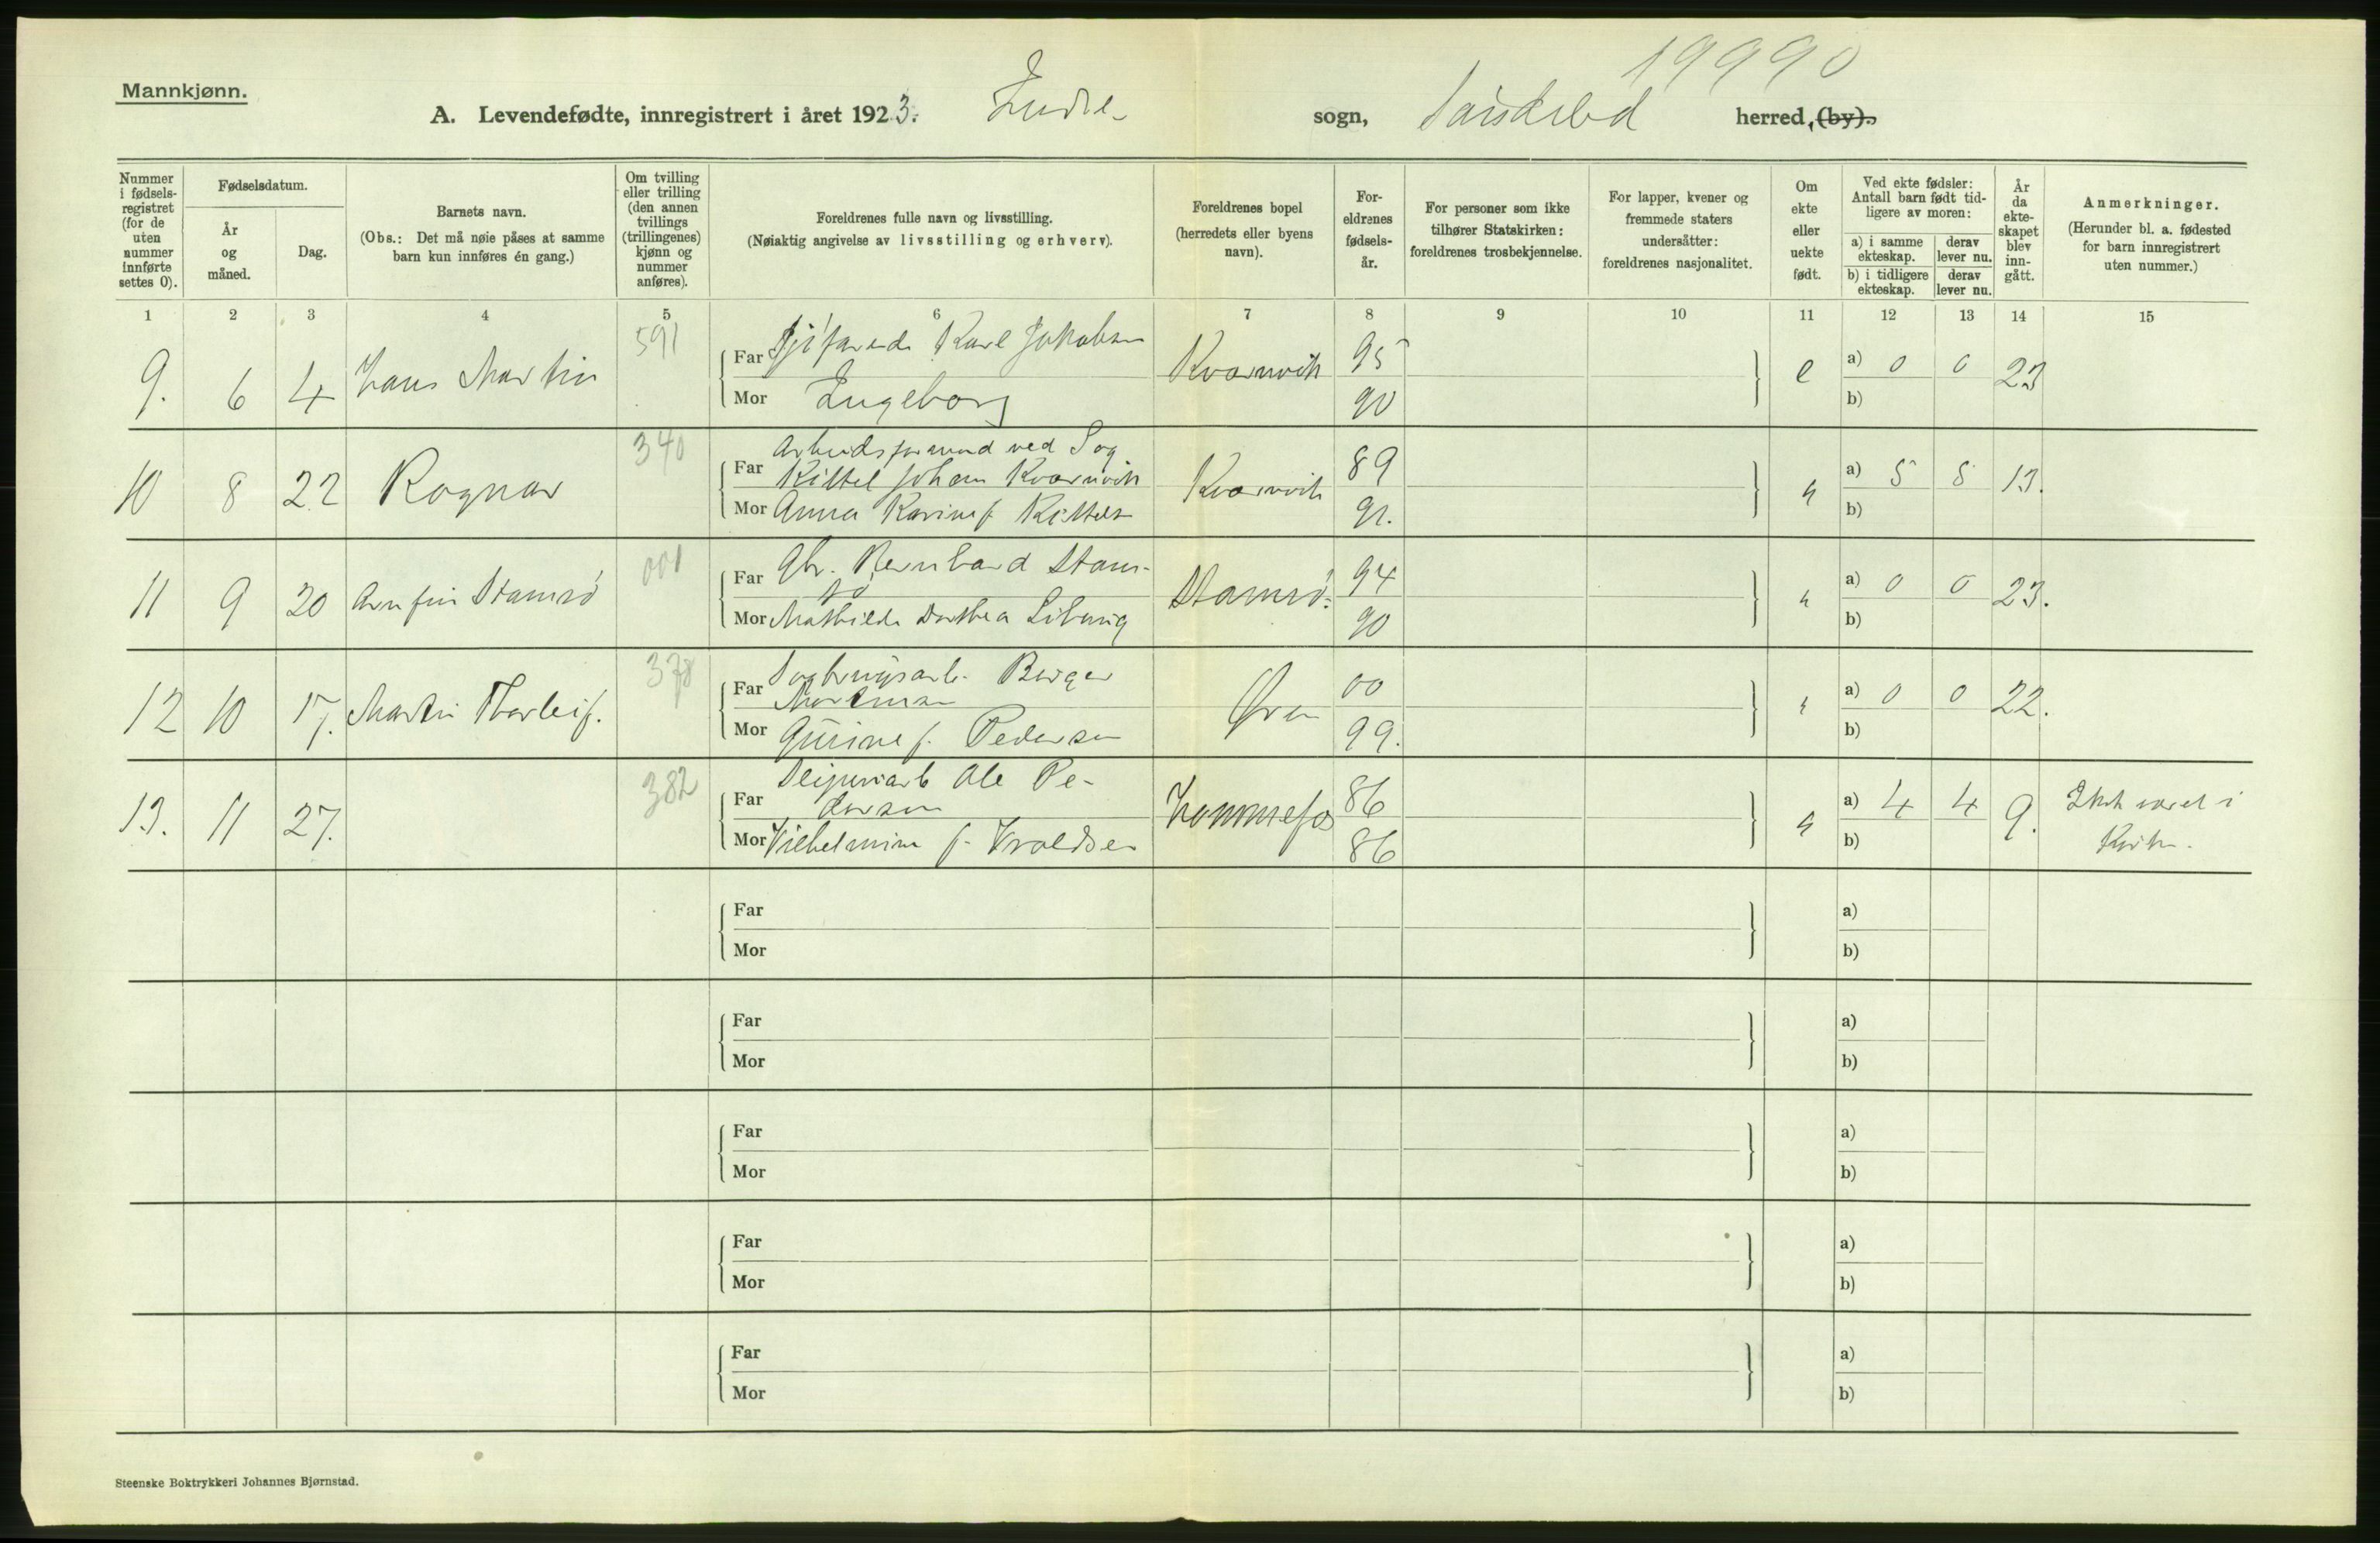 19990
Mannkjønn.
A. Levendefødte, innregistrert i året 1923. sogn, herred, (by).
Nummer i fødsels-registret (for de uten nummer innførte settes 0).
Fødselsdatum.
År og måned.
Dag.
Barnets navn.
(Obs.: Det må nøie påses at samme barn kun innføres én gang.)
Om tvilling eller trilling (den annen tvillings (trillingenes) kjønn og nummer anføres).
Foreldrenes fulle navn og livsstilling.
(Nøiaktig angivelse av livsstilling og erhverv).
Foreldrenes bopel (herredets eller byens navn).
For-eldrenes fødsels-år.
For personer som ikke tilhører Statskirken: foreldrenes trosbekjennelse.
For lapper, kvener og fremmede staters undersåtter: foreldrenes nasjonalitet.
Om ekte eller uekte født.
Ved ekte fødsler: Antall barn født tid-ligere av moren:
a) i samme ekteskap.
derav lever nu.
b) i tidligere ekteskap.
derav lever nu.
År da ekte-skapet blev inn-gått.
Anmerkninger.
(Herunder bl. a. fødested for barn innregistrert uten nummer.)
1 2 3 4 5 6 7 8 9 10 11 12 13 14 15
591
9. 6 4 Hans Martin
Far Karl Jakobsen
Mor Ingeborg
Kvarnvik 95 90 e a) 0 0 23
b)
340
10 8 22 Ragnar
Arbeidsformand ved Sag
Far Kittel Johan Kvarnvik
Mor Anna Karine f. Kittels
Kvarnvik 89 91. a) 5 5 13.
b)
001
11 9 20 Arnfin Stamsø
Far Bernhard Stam-
sø
Mor Mathilde Dorthea
Stamsø. 94 90 a) 0 0 23.
b)
378
12 10 17. Martin Thorleif.
Far Sagbrugsarb. Birger
Mortensen
Mor Gurine f. Pedersen
00 99. a) 0 0 22.
b)
382
13. 11 27.
Far Sliperiarb Ole Pe-
dersen
Mor Vilhelmine f. Vroldsen
Hommefos 86 86 a) 4 4 9. Ikke været i
b) Kirke.
Far a)
Mor b)
Far a)
Mor b)
Far a)
Mor b)
Far a)
Mor b)
Far a)
Mor b)
Steenske Boktrykkeri Johannes Bjørnstad.